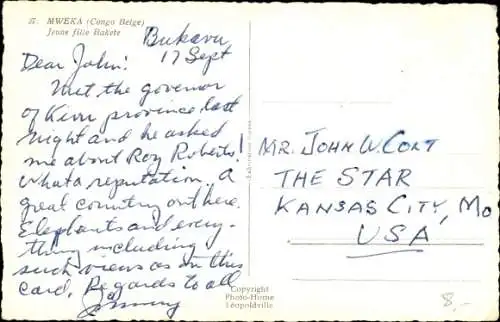 27. MWEKA (Congo Belge)
Jeune fille Bakete
Bukavu
17 Sept
Dear John:
Met the governor
of Kivu province last
night and he asked
me about Roy Roberts!
What a reputation. A
great country out here.
Elephants and every-
thing including
such views as on this
card. Regards to all
MR. JOHN W. COLT
THE STAR
KANSAS CITY, MO
USA
Copyright
Photo-Home
Léopoldville
8,-